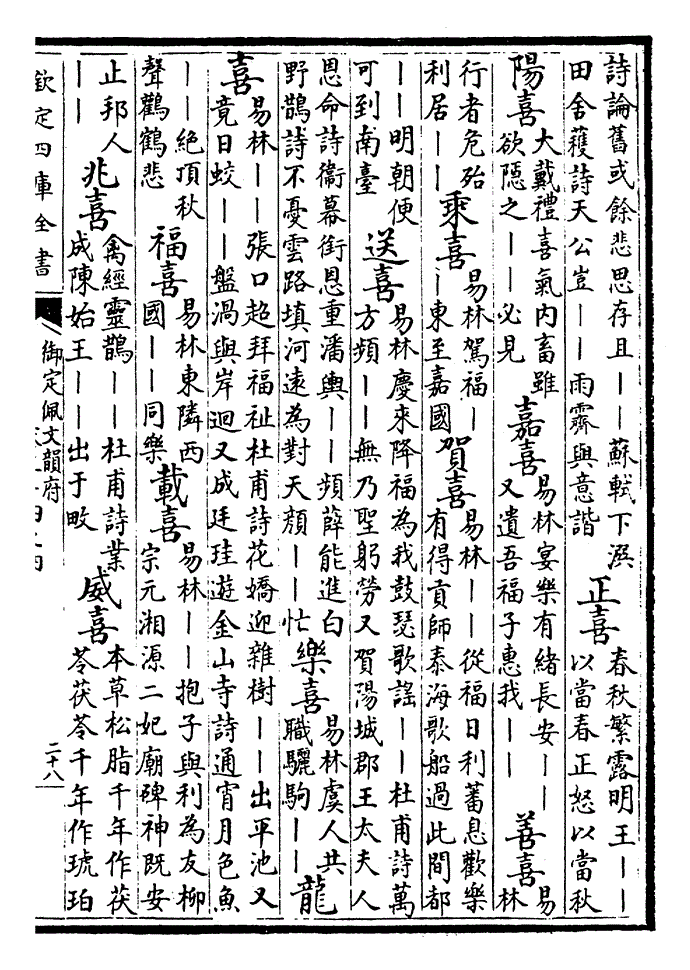 詩論舊或餘悲思存且——蘇軾下濕
田舍穫詩天公豈——雨霽與意諧
正喜
春秋繁露明王——
以當春正怒以當秋
陽喜
大戴禮喜氣内畜雖
欲隱之——必見
嘉喜
易林宴樂有緒長安——
又遺吾福子惠我——
善喜
易
林
行者危殆
利居——
乘喜
易林駕福—
—東至嘉國
賀喜
易林——從福日利蕃息歡樂
有得貢師泰海歌船過此間都
——明朝便
可到南臺
送喜
易林慶來降福為我鼓瑟歌謡——杜甫詩萬
方頻——無乃聖躬勞又賀陽城郡王太夫人
恩命詩衞幕銜恩重潘輿——頻薛能進白
野鵲詩不憂雲路填河遠為對天顔——忙
樂喜
易林虞人共
職驪駒——
龍
喜
易林——張口超拜福祉杜甫詩花嬌迎雜樹——出平池又
竟日蛟——盤渦與岸迴又成廷珪遊金山寺詩通宵月色魚
——絶頂秋
聲鸛鶴悲
福喜
易林東隣西
國——同樂
載喜
易林——抱子與利為友柳
宗元湘源二妃廟碑神既安
止邦人
——
兆喜
禽經靈鵲——杜甫詩業
成陳始王——出于畋
威喜
本草松脂千年作茯
苓茯苓千年作琥珀
欽定四庫全書
御定佩文韻府
二十八